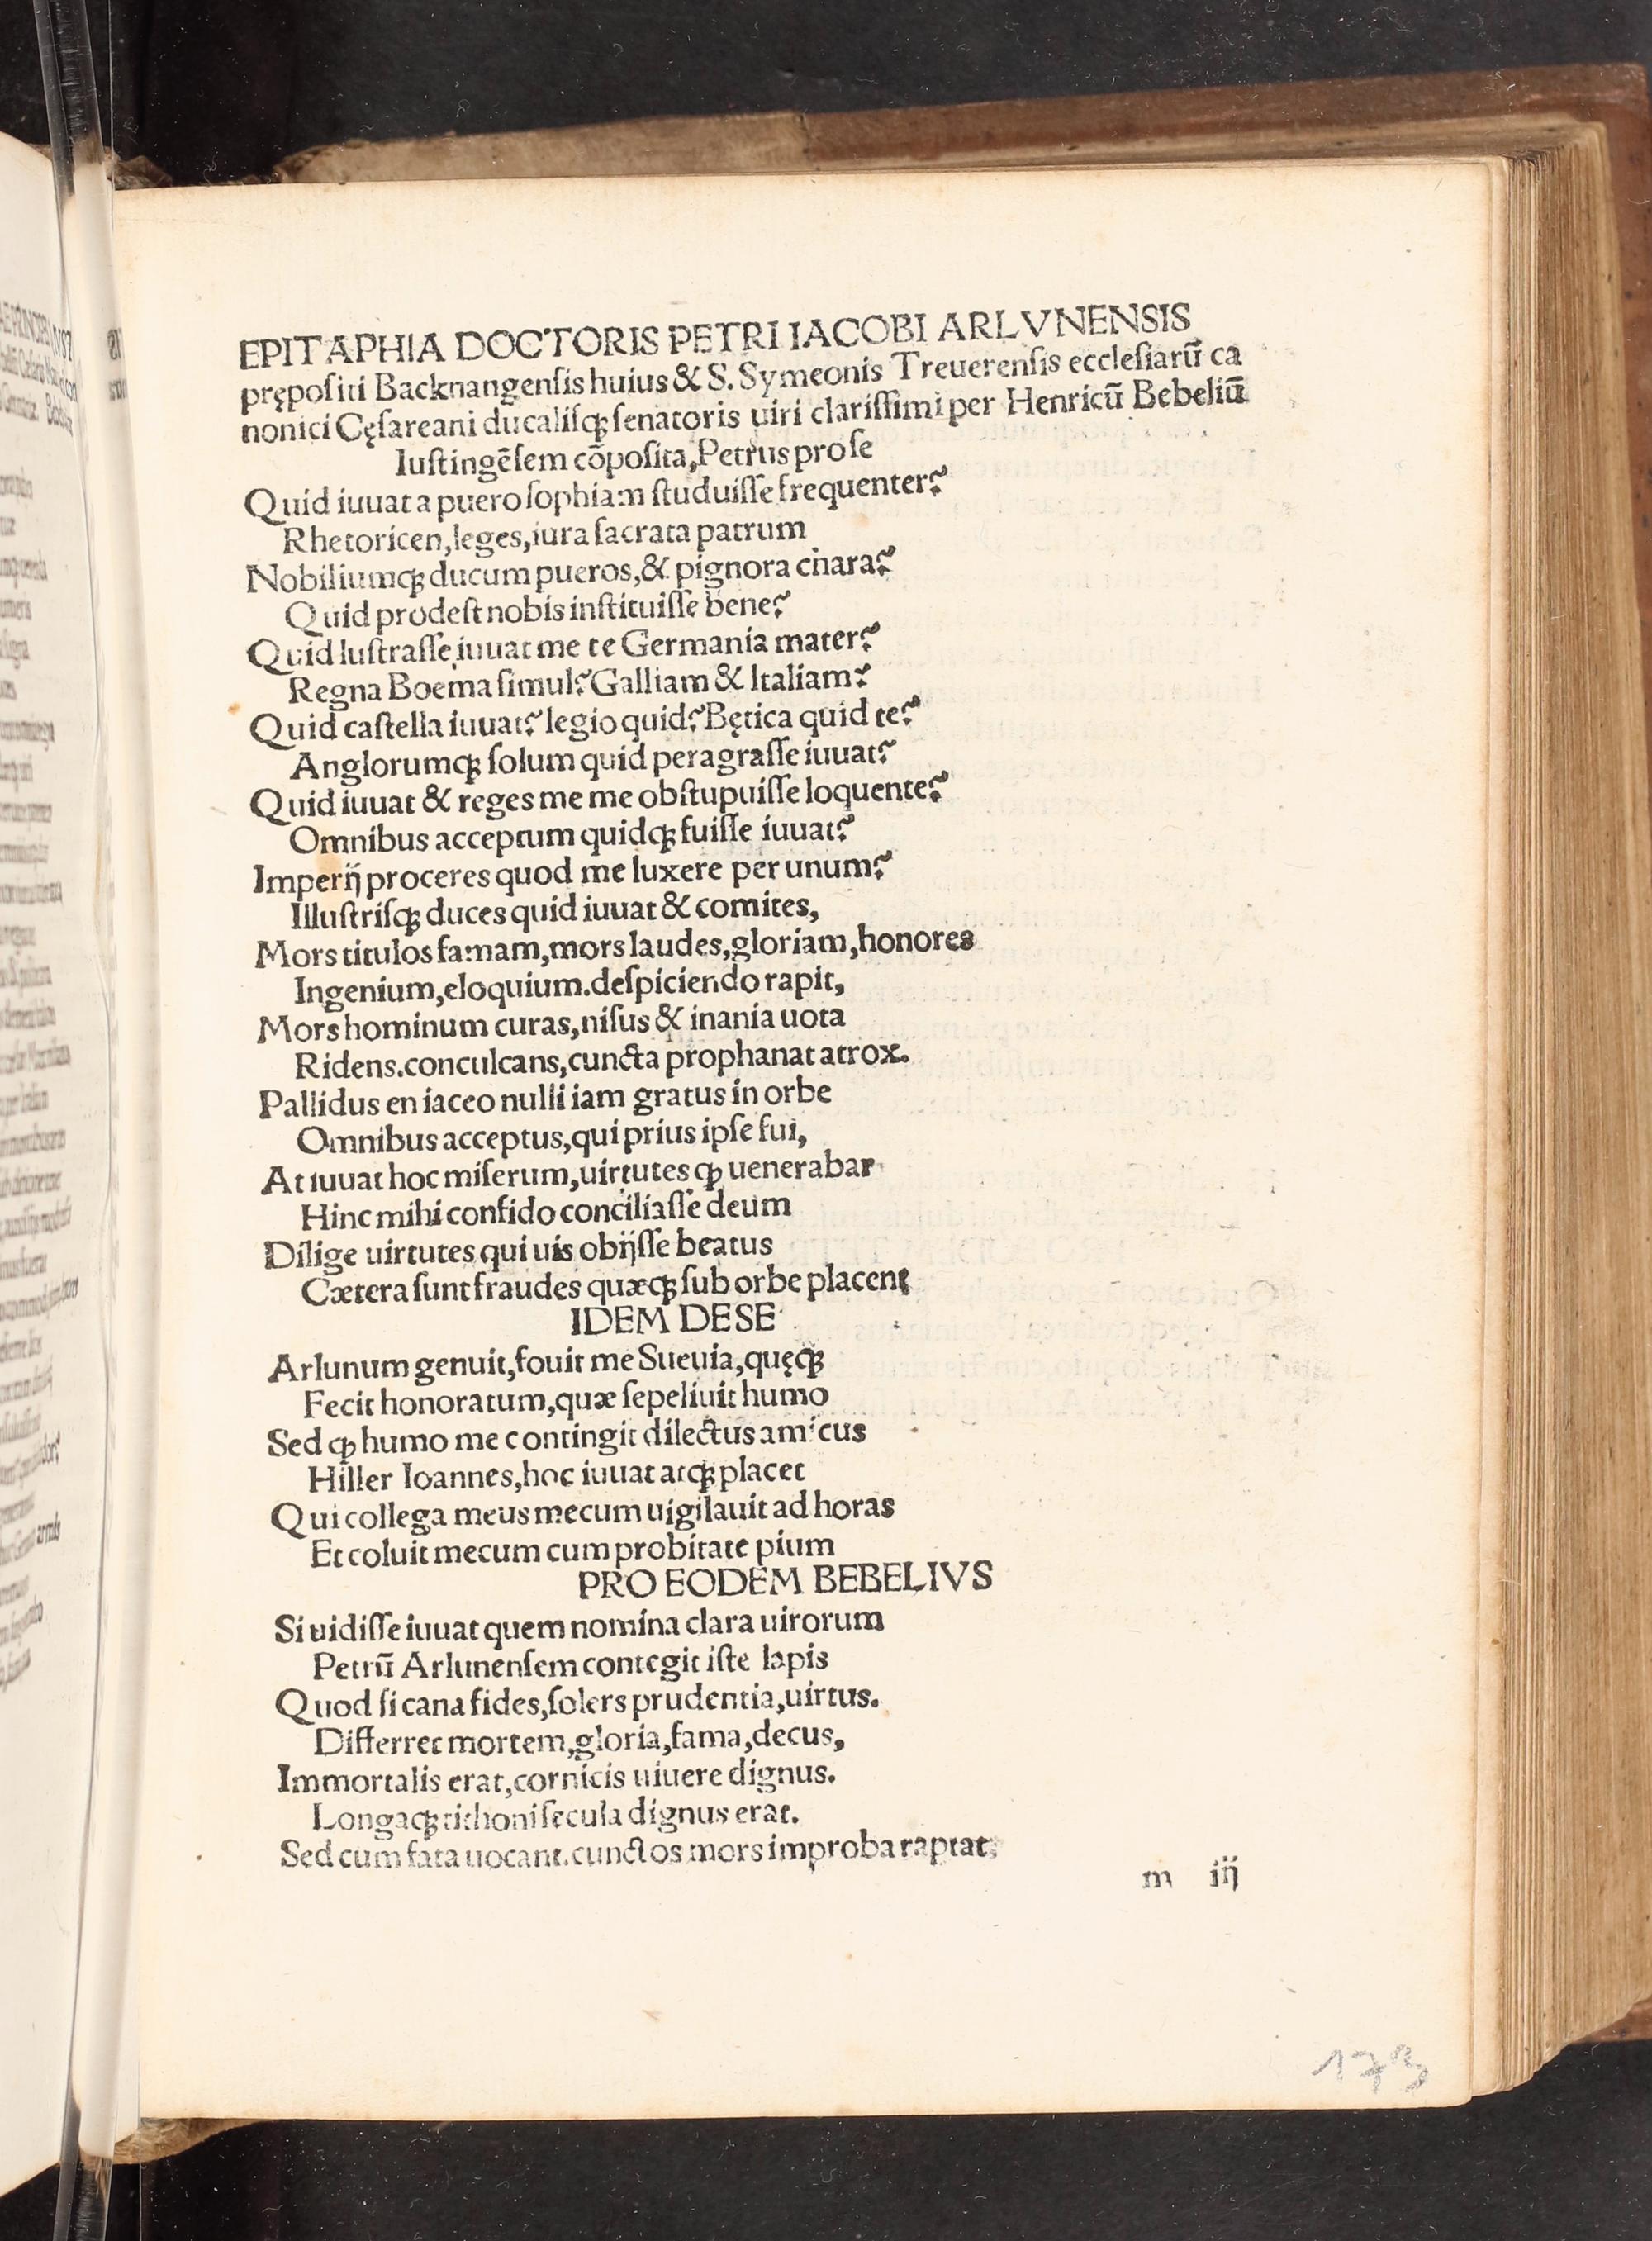 EPITAPHIA DOCTORIS PETRI IACOBI ARLVNENSIS
prępositi Backnangensis huius & S. Symeonis Treuerensis ecclesiarū ca
nonici Cęsareani ducalisqꝫ senatoris uiri clarissimi per Henricū Bebeliū
Iustingēsem cōposita, Petrus pro se
Quid iuuat a puero sophiam studuisse frequenter?
Rhetoricen, leges, iura sacrata patrum
Nobiliumqꝫ ducum pueros, & pignora chara?
Quid prodest nobis instituisse bene?
Quid lustrasse iuuat me te Germania mater?
Regna Boema simul? Galliam & Italiam?
Quid castella iuuat? legio quid? Bętica quid te?
Anglorumqꝫ solum quid peragrasse iuuat?
Quid iuuat & reges me me obstupuisse loquente?
Omnibus acceptum quidqꝫ fuisse iuuat?
Imperij proceres quod me luxere per unum?
Illustrisqꝫ duces quid iuuat & comites,
Mors titulos famam, mors laudes, gloriam, honores
Ingenium, eloquium. despiciendo rapit,
Mors hominum curas, nisus & inania uota
Ridens. conculcans, cuncta prophanat atrox.
Pallidus en iaceo nulli iam gratus in orbe
Omnibus acceptus, qui prius ipse fui,
At iuuat hoc miserum, uirtutes ꝙ uenerabar
Hinc mihi confido conciliasse deum
Dilige uirtutes qui uis obijsse beatus
Cætera sunt fraudes quæqꝫ sub orbe placent
IDEM DE SE
Arlunum genuit, fouit me Sueuia, quęqꝫ
Fecit honoratum, quæ sepeliuit humo
Sed ꝙ humo me contingit dilectus amicus
Hiller Ioannes, hoc iuuat atqꝫ placet
Qui collega meus mecum uigilauit ad horas
Et coluit mecum cum probitate pium
PRO EODEM BEBELIVS
Si uidisse iuuat quem nomina clara uirorum
Petrū Arlunensem contegit iste lapis
Quod si cana fides, solers prudentia, uirtus.
Differret mortem, gloria, fama, decus,
Immortalis erat, cornicis uiuere dignus.
Longaqꝫ tithoni secula dignus erat.
Sed cum fata uocant. cunctos mors improba raptat,
m iij
173